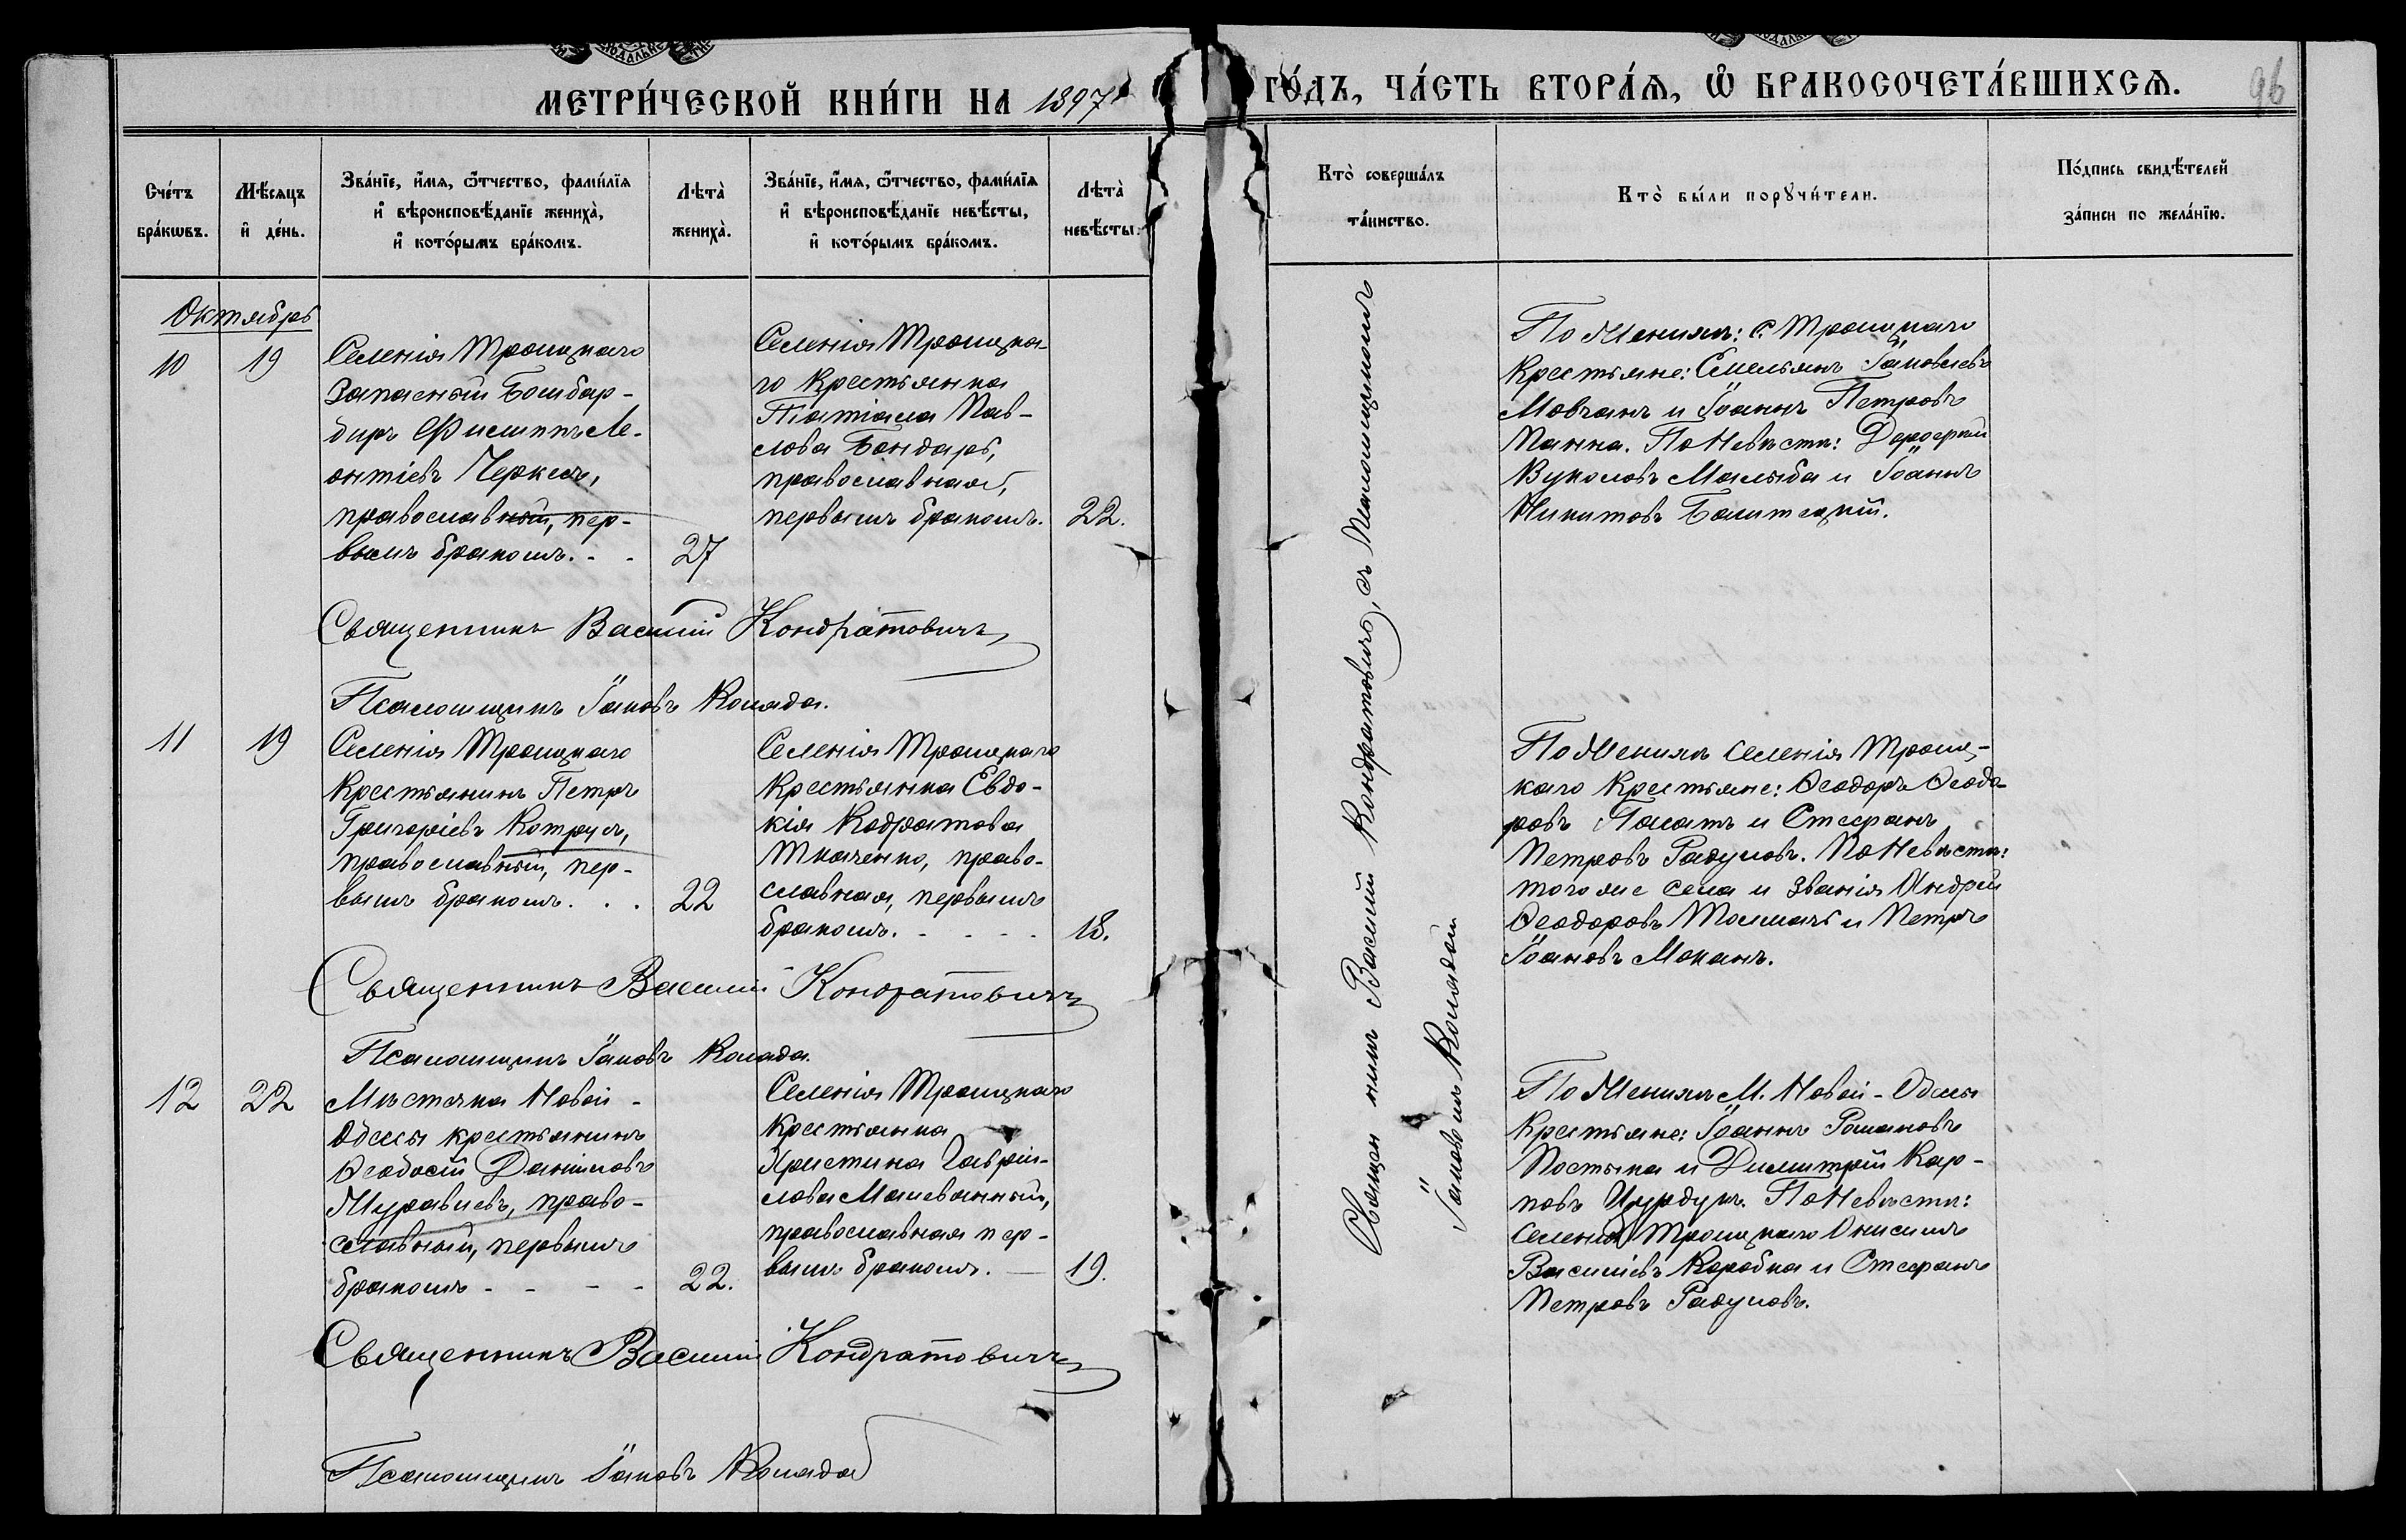 МЕТРИ́ЧЕСКОЙ КНИ́ГИ НА 1897
ГО́ДЪ, ЧА́СТЬ ВТОРА́Ѧ, Ѽ БРАКОСОЧЕТА́ВШИХСѦ.
96
Сче́тъ бра́кѡвъ.
Мѣ́сяцъ и҆ де́нь.
Зва́нїе, и҆́мѧ, ѻ҆́тчество, фами́лїѧ и҆ вѣроисповѣ́данїе жениха̀, и҆ кото́рымъ бра́комъ.
Лѣта̀ жениха̀.
Зва́нїе, и҆́мѧ, ѻ҆́тчество, фами́лїѧ и҆ вѣроисповѣ́данїе невѣ́сты, и҆ кото́рымъ бра́комъ.
Лѣта̀ невѣ́сты.
Кто̀ соверша́лъ та́инство.
Кто̀ бы́ли порꙋчи́тели.
По́дпись свидѣ́телей за́писи по жела́нїю.
Октябрь
10
19
Селенія Троицкаго
Запасный Бомбар-
диръ Филиппъ Ле-
онтіевъ Черкесъ,
православный, пер-
вымъ бракомъ. - -
27
Селенія Троицка-
го крестьянка
Татіана Пав-
лова Бондарь,
православная,
первымъ бракомъ.
22.
По Женихѣ: с. Троицкаго
крестьяне: Емельянъ Іаковлевъ
Мовчанъ и Іоаннъ Петровъ
Панна. По Невѣстѣ: Дорофей
Вуколовъ Малыба и Іоаннъ
Никитовъ Балитацкій.
Священникъ Василій Кондратовичъ
Псаломщикъ Іаковъ Коляда.
11
19
Селенія Троицкаго
крестьянинъ Петръ
Григоріевъ Котруцъ,
православный, пер-
вымъ бракомъ. . .
22
Селенія Троицкаго
крестьянка Евдо-
кія Кодратова
Ткаченко, право-
славная, первымъ
бракомъ. - - - -
18.
По Женихѣ селенія Троиц-
каго крестьяне: Ѳеодоръ Ѳеодо-
ровъ Палатъ и Стефанъ
Петровъ Радуловъ. По Невѣстѣ:
того же села и званія Андрей
Ѳеодоровъ Толмачъ и Петръ
Іоановъ Моканъ.
Священникъ Василій Кондратовичъ
Псаломщикъ Іаковъ Коляда.
12
22
Мѣстечка Новой-
Одессы крестьянинъ
Ѳеодосій Даніиловъ
Муравлевъ, право-
славный, первымъ
бракомъ - - - -
22.
Селенія Троицкаго
крестьянка
Христина Гавріи-
лова Малеванный,
православная пер-
вымъ бракомъ. —
19.
По Женихѣ М. Новой-Одессы
крестьяне: Іоаннъ Романовъ
Постыка и Димитрій Кар-
повъ Цурдукъ. По Невѣстѣ:
Селенія Троицкаго Онисимъ
Василіевъ Коробка и Стефанъ
Петровъ Радуловъ.
Священникъ Василій Кондратовичъ
Псаломщикъ Іаковъ Коляда
Священникъ Василій Кондратовичъ, съ Псаломщикомъ
Іаковомъ Колядой